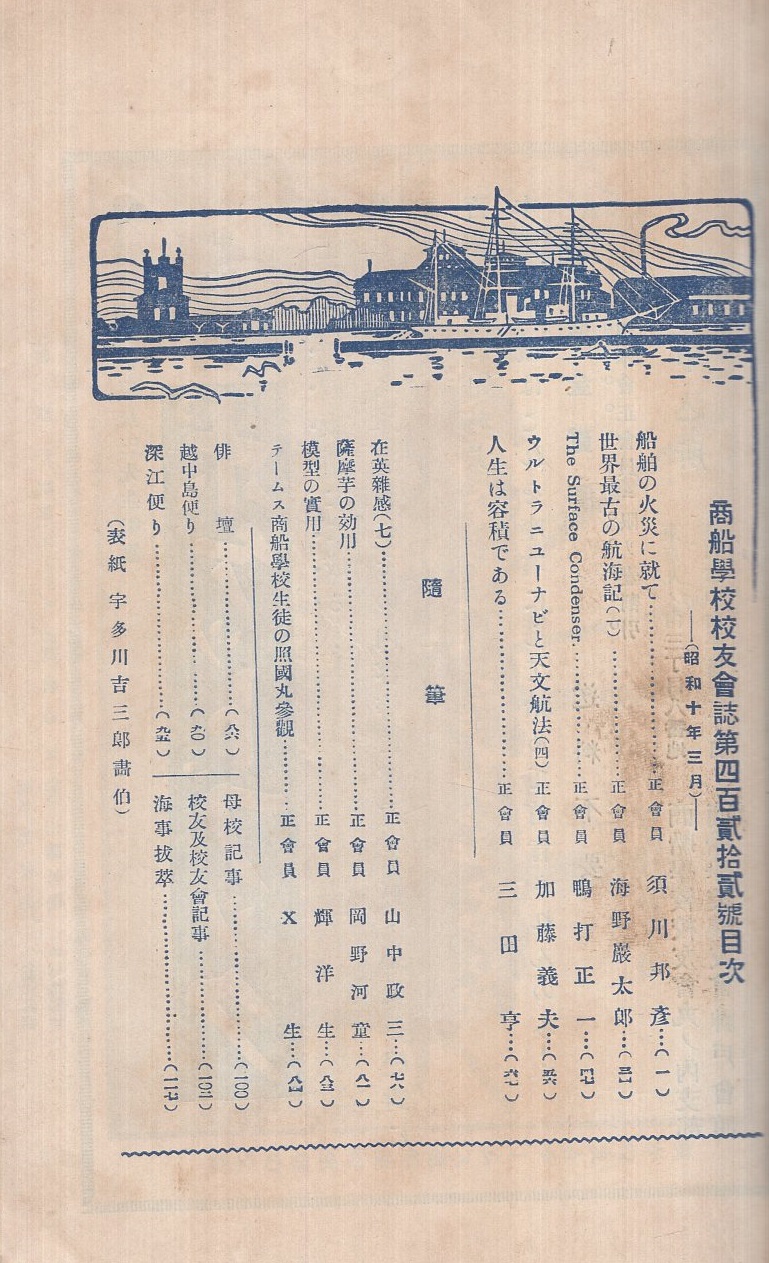 商船學校校友會誌第四百貳拾貳號目次
―(昭和十年三月)―
船舶の火災に就て…………正會員 須川邦彥…(一)
世界最古の航海記(一)…………正會員 海野巖太郎…(三一)
The Surface Condenser.…………正會員 鴨打正一…(四七)
ウルトラニユーナビと天文航法(四)正會員 加藤義夫…(五六)
人生は容積である…………正會員 三田亨…(六七)
隨筆
在英雜感(七)…………正會員 山中政三…(七六)
薩摩芋の効用…………正會員 岡野河童…(八一)
模型の實用…………正會員 輝洋生…(八三)
テームス商船學校生徒の照國丸參觀…………正會員 X生…(八四)
俳壇…………(八六)
母校記事…………(一〇〇)
越中島便り…………(九〇)
校友及校友會記事…………(一〇三)
深江便り…………(九五)
海事拔萃…………(一一七)
(表紙 宇多川吉三郎畵伯)